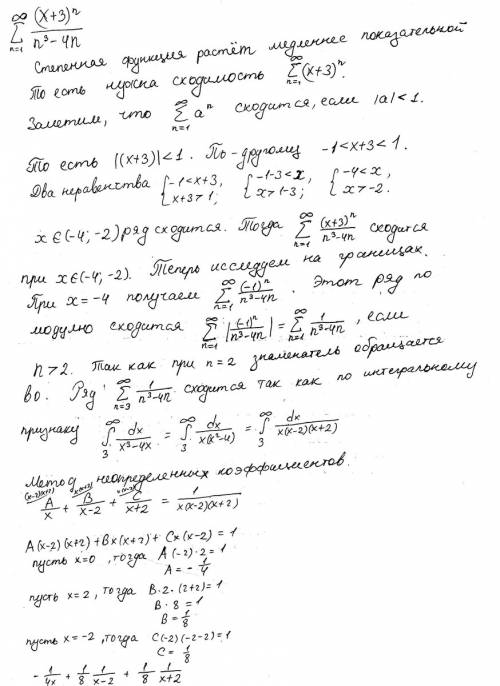 ∞
∑ (x+3)ⁿ / (n³−4n)
n=1
Степенная функция растёт медленнее показательной
То есть нужна сходимость ∑_{n=1}^{∞} (x+3)ⁿ.
Заметим, что ∑_{n=1}^{∞} aⁿ сходится, если |a|<1.
То есть |(x+3)|<1. По-другому −1<x+3<1.
Два неравенства { −1<x+3, x+3>1; { −1−3<x, x>1−3; { −4<x, x>−2.
x∈(−4; −2) ряд сходится. Тогда ∑_{n=1}^{∞} (x+3)ⁿ/(n³−4n) сходится
при x∈(−4; −2). Теперь исследуем на границах.
При x=−4 получаем ∑_{n=1}^{∞} (−1)ⁿ/(n³−4n). Этот ряд по
модулю сходится ∑_{n=1}^{∞} |(−1)ⁿ/(n³−4n)| = ∑_{n=1}^{∞} 1/(n³−4n), если
n>2. Так как при n=2 знаменатель обращается
в 0. Ряд ∑_{n=3}^{∞} 1/(n³−4n) сходится так как по интегральному
признаку ∫_{3}^{∞} dx/(x³−4x) = ∫_{3}^{∞} dx/(x(x²−4)) = ∫_{3}^{∞} dx/(x(x−2)(x+2))
Метод неопределенных коэффициентов.
A/x + B/(x−2) + C/(x+2) = 1/(x(x−2)(x+2))
A(x−2)(x+2)+Bx(x+2)+Cx(x−2)=1
пусть x=0, тогда A(−2)·2=1
A=−1/4
пусть x=2, тогда B·2·(2+2)=1
B·8=1
B=1/8
пусть x=−2, тогда C(−2)(−2−2)=1
C=1/8
−1/(4x) + 1/8 · 1/(x−2) + 1/8 · 1/(x+2)